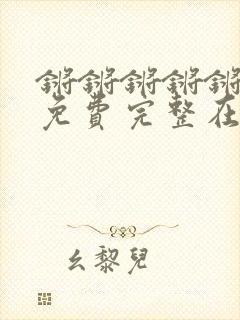 锵锵锵锵锵
免费完整在
幺黎兒